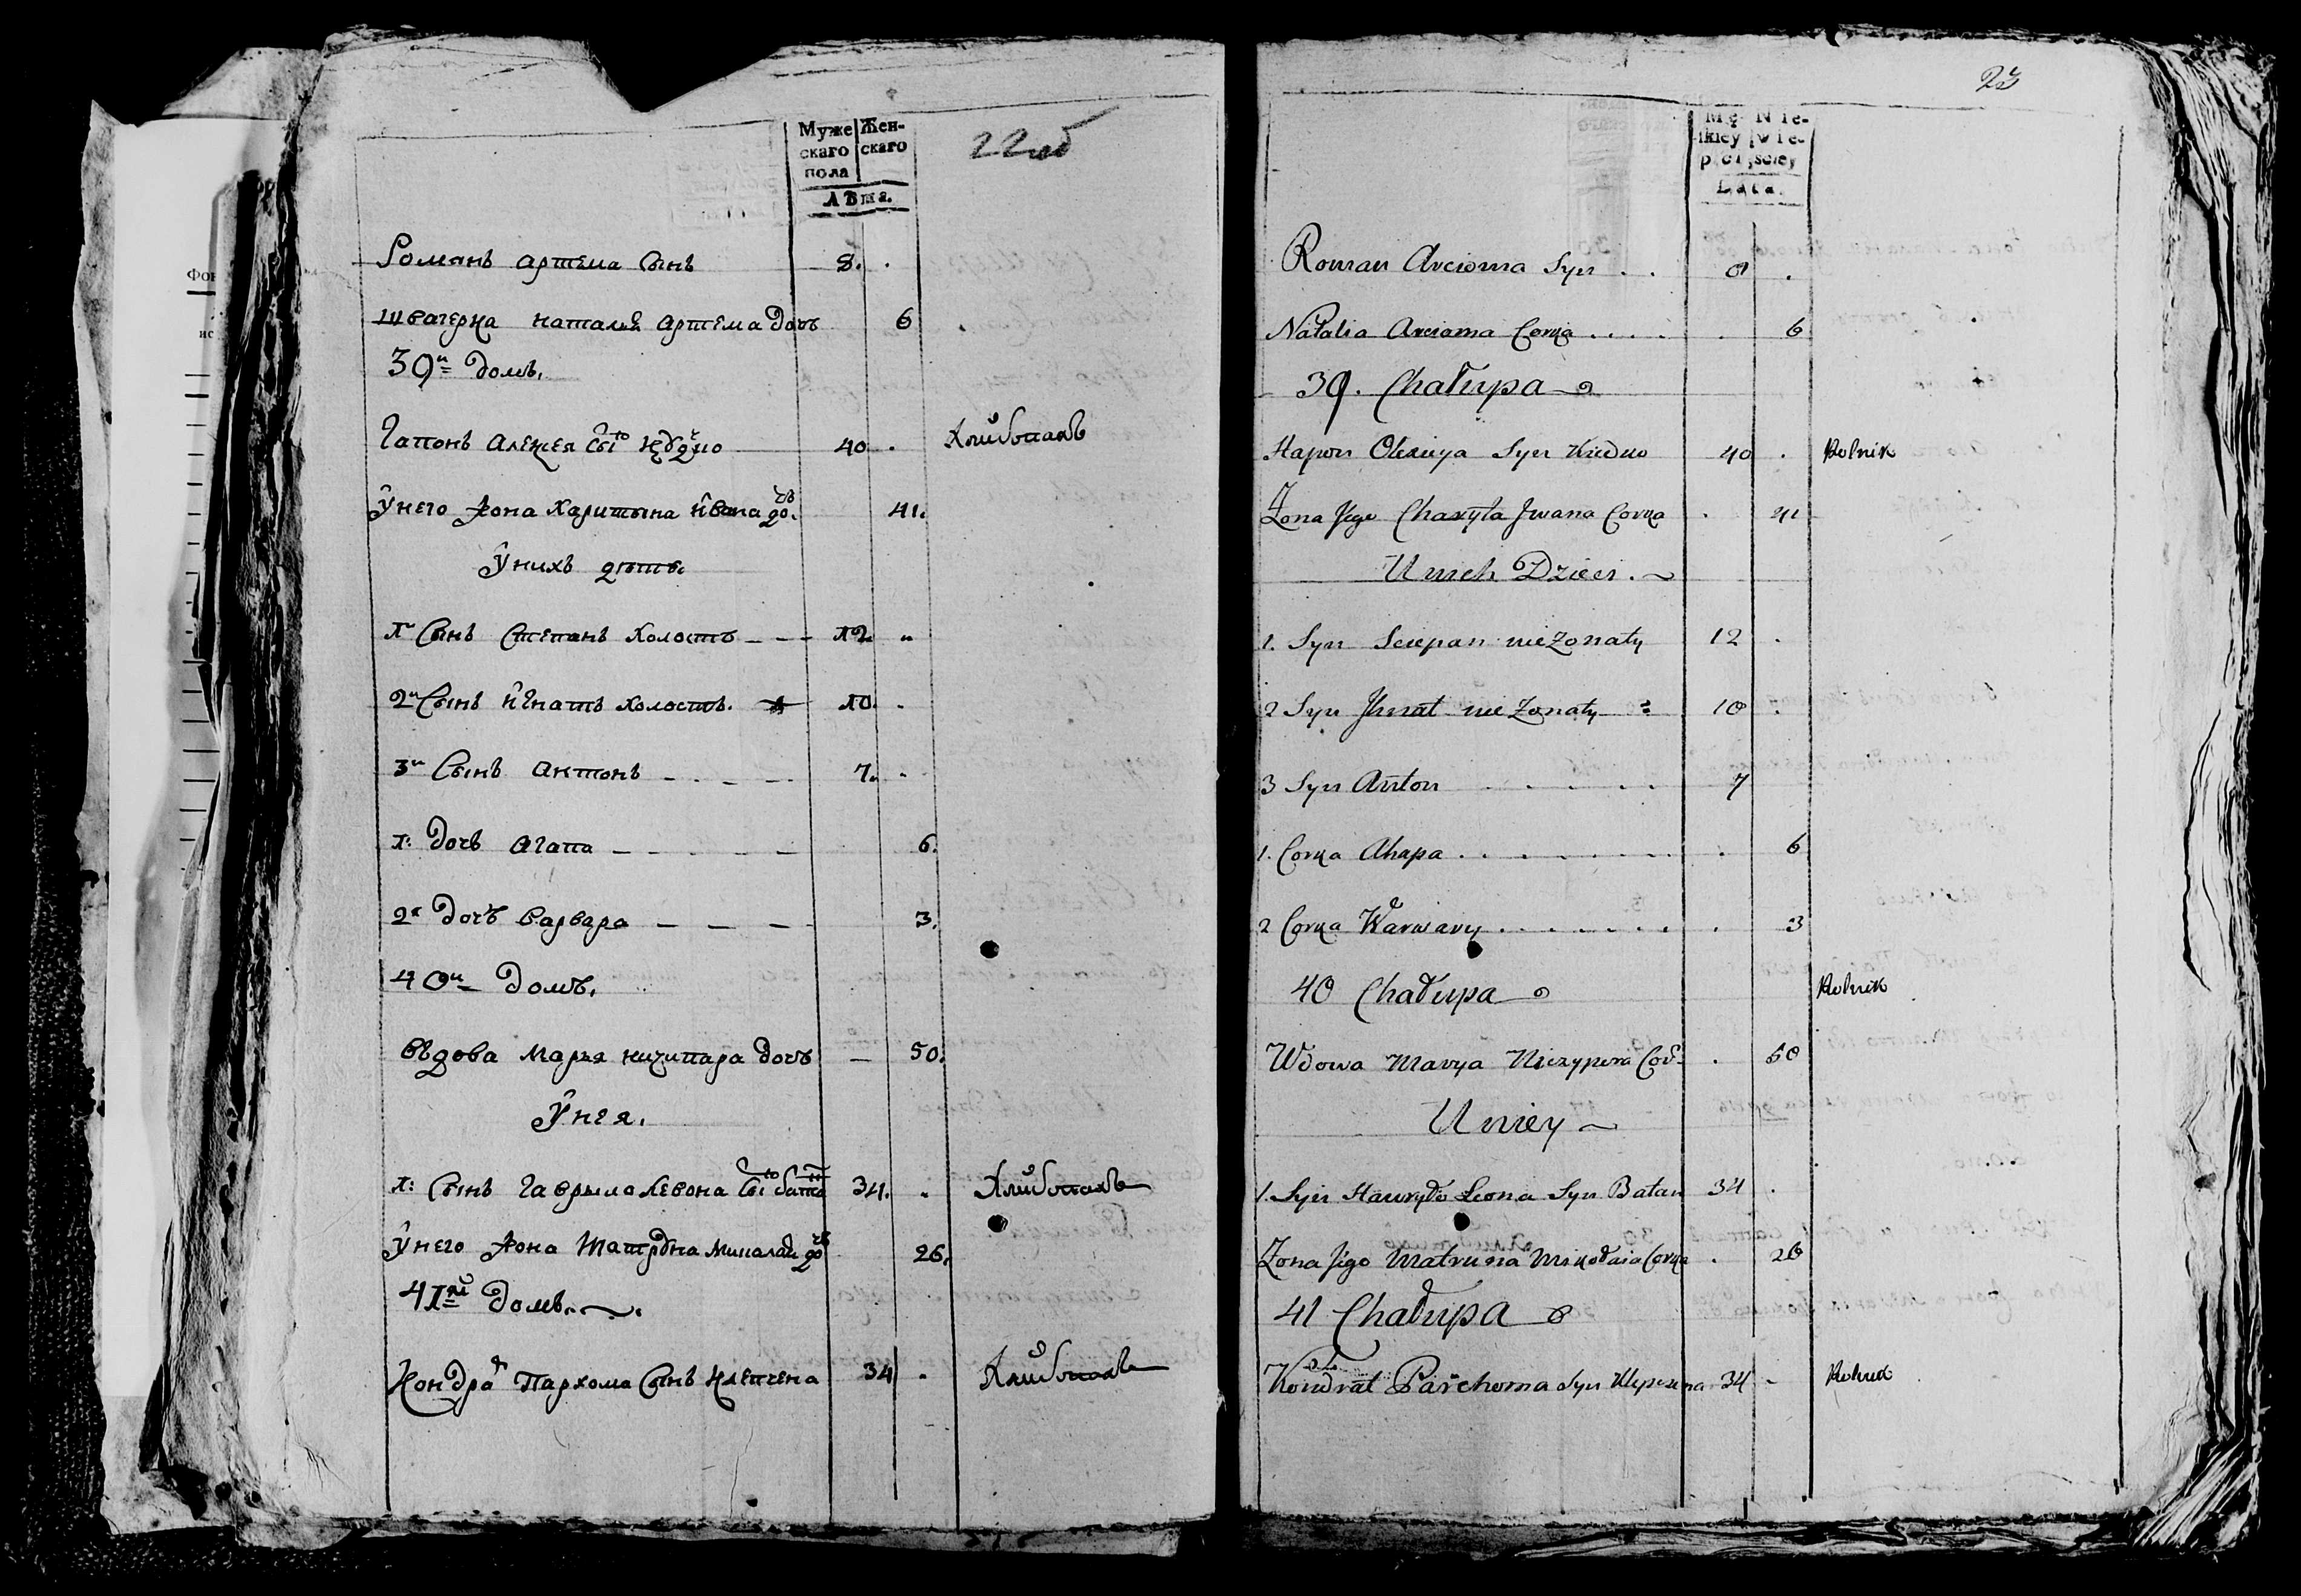 22 об
Муже
скаго
пола
Жен-
скаго
Лѣта.
Романъ Артема Сынъ 8.
Швагерка Наталія Артема дочъ 6
39й домъ.
Гапонъ Алексея 40 Хлибопакъ
У него Жона Харитына Ивана до.чъ 41.
У нихъ дѣти.
1й Сынъ Степанъ Холостъ 12
2й Сынъ Игнатъ Холостъ. 10.
3й Сынъ Антонъ 7.
1: Дочъ Агапа 6.
2я Дочъ Варвара 3.
40й Домъ.
Вдова Марья Ничипара Дочъ 50.
У нея.
1: Сынъ Гаврыло Левона 34. Хлибопакъ
У него Жона Матруна Миколая дочъ 26.
41й Домъ.
Кондрат Пархома Сынъ Клепчена 34 Хлибопакъ
23
Męskiey
płci
Niewieściey
Lata.
Roman Arcioma Syn 8
Natalia Arcioma Corka 6
39. Chałupa
Hapon Olexieya Syn 40 Rolnik
Zona Jego Charyta Jwana Corka 41
U nich Dzieci.
1. Syn Sciepan nie Zonaty 12
2 Syn Jhnat nie Zonaty 10
3 Syn Anton 7
1. Corka Ahapa 6
2 Corka Warwary 3
40 Chałupa Rolnik
Wdowa Marya Niczypora Cor. 50
U niey
1. Syn Hawryło Leona Syn Batan 34
Zona Jego Matruna Mikołaia Corka 26
41 Chałupa
Kondrat Parchoma Syn 34 Rolnik